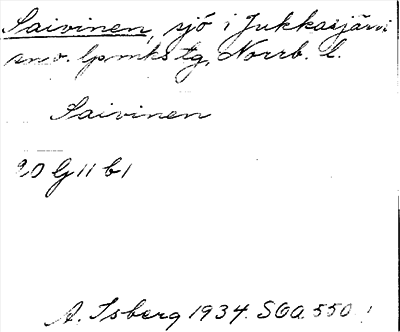 Saivinen, sjö i Jukkasjärvi
snv. lpmks tg, Norrb. l.
Saivinen
20 G 11 b 1
A. Isberg 1934. SOA. 550.